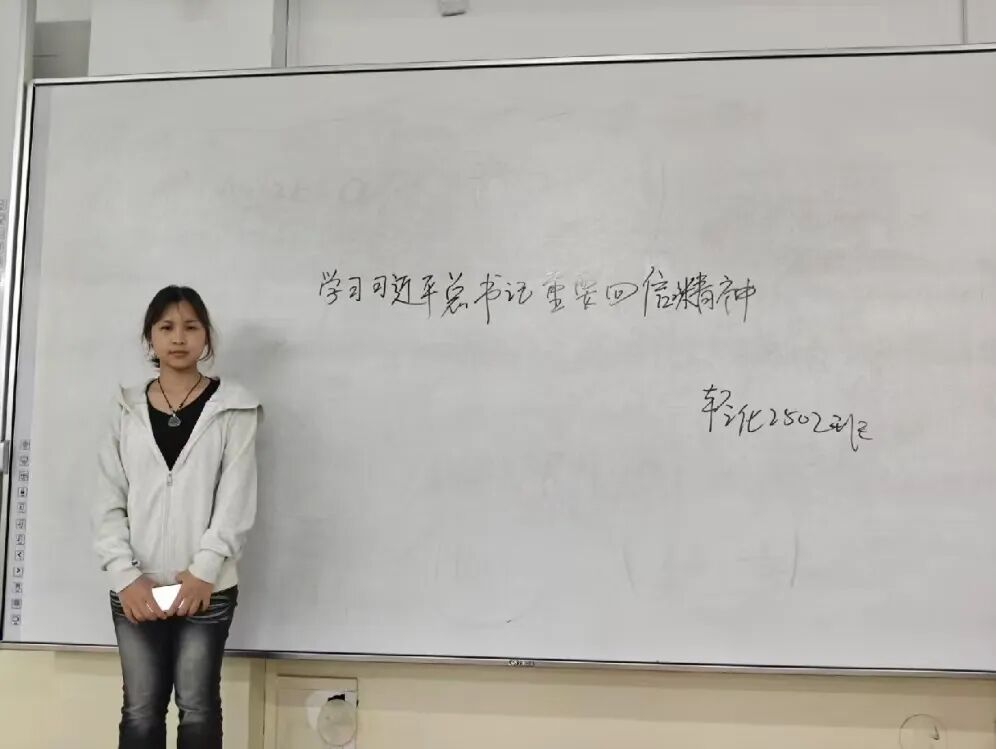 学习习近平总书记重要回信精神
轻化2502班